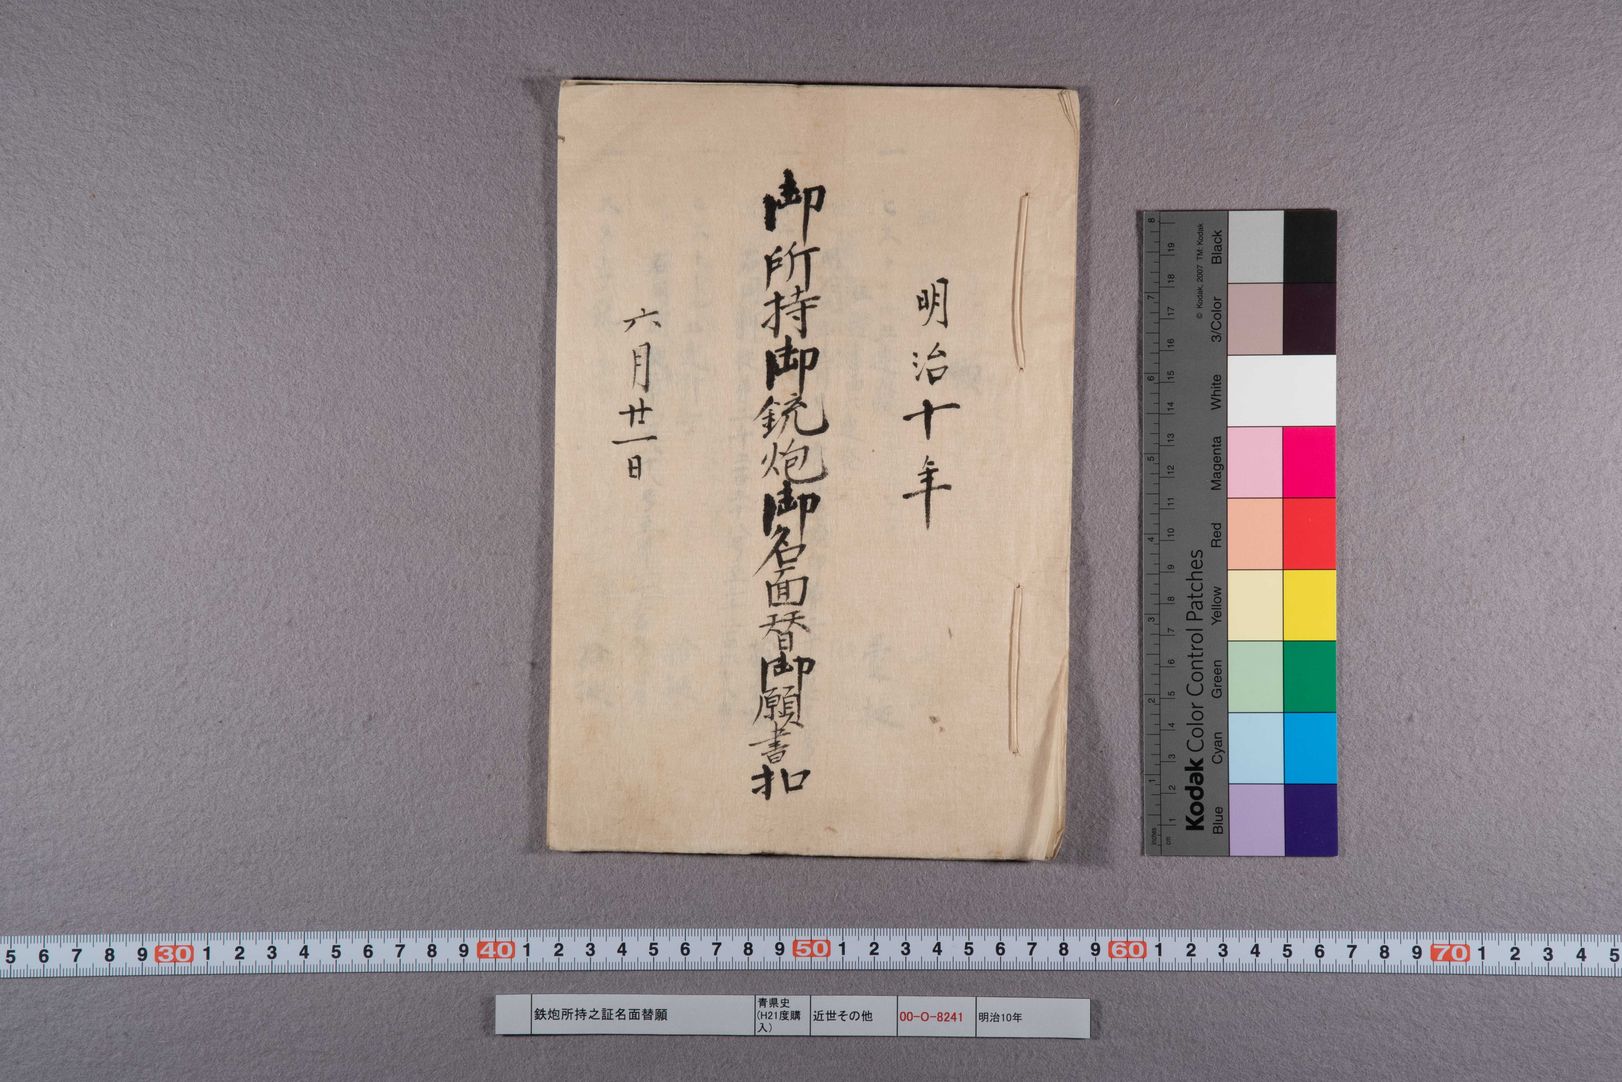 明治十年
御所持御銃炮御名面替御願書扣
六月廿一日
Kodak Color Control Patches
© Kodak, 2007 TM: Kodak
Blue Cyan Green Yellow Red Magenta White 3/Color Black
inches 1 2 3 4 5 6 7 8
cm 1 2 3 4 5 6 7 8 9 10 11 12 13 14 15 16 17 18 19
5 6 7 8 9 30 1 2 3 4 5 6 7 8 9 40 1 2 3 4 5 6 7 8 9 50 1 2 3 4 5 6 7 8 9 60 1 2 3 4 5 6 7 8 9 70 1 2 3 4 5
鉄炮所持之証名面替願
青県史
(H21度購
入)
近世その他
00-O-8241
明治10年